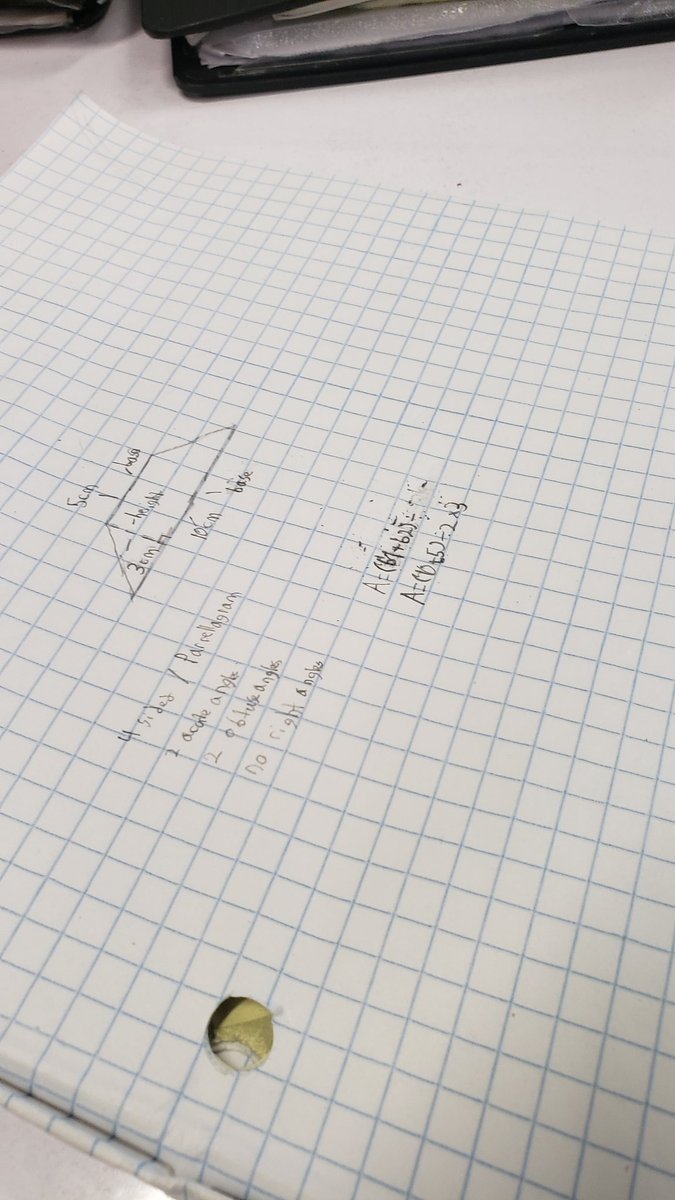 5cm
base
height
3cm
10cm
base
4 sides / Parrellagram
2 acute angle
2 obtuse angles
no right angles
A=(b1+b2)÷
A=(10+5)÷2x3